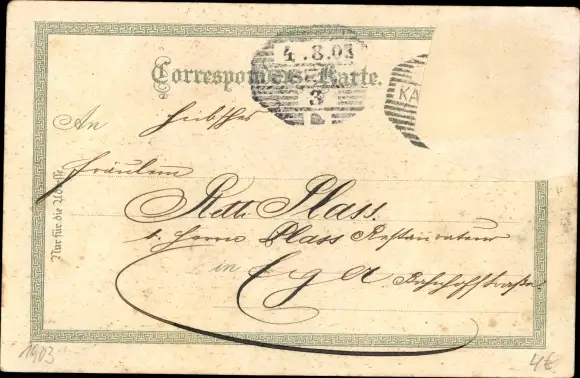 4.8.03
Correspondenz-Karte.
3
KA
An Hübsches
Fräulein
Retti Plass.
b. Herrn Plass Restaurateur
in Ega Bahnhofstraße.
Nur für die Adresse
1903
4€